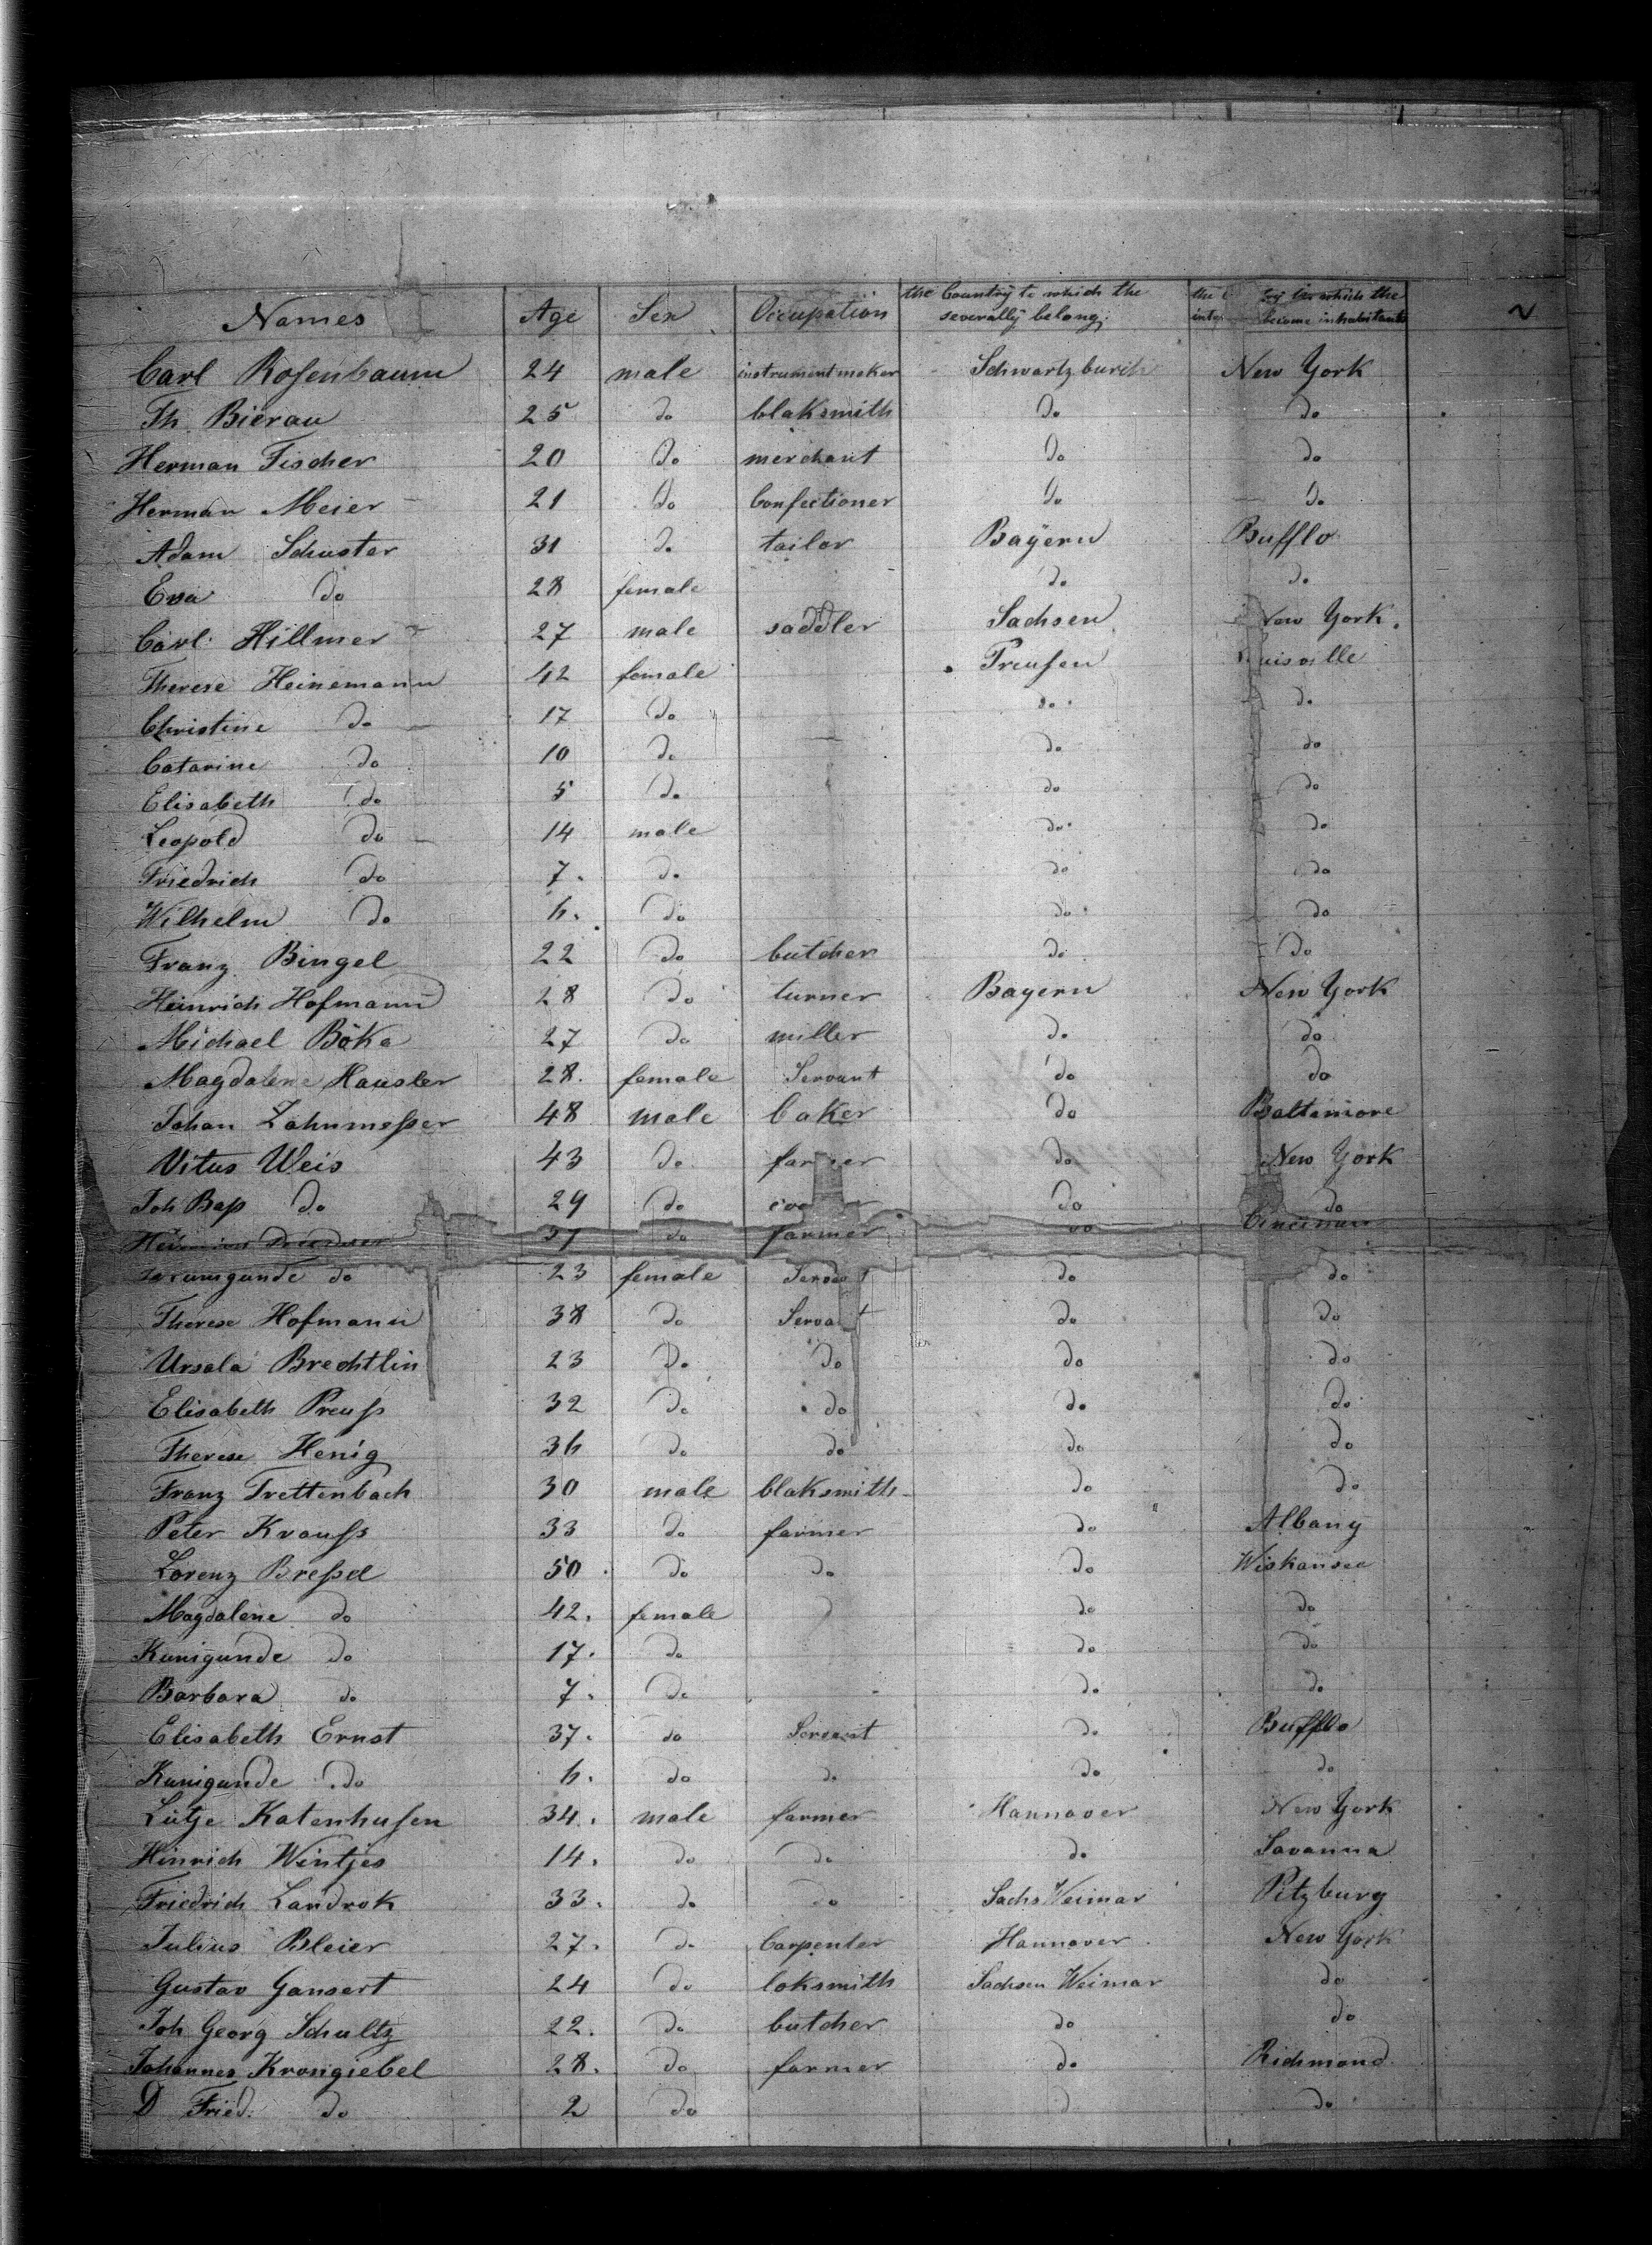 Names Age Sex Occupation the Country to which the severally belong: in which the become inhabitants
Carl Rosenbaum 24 male instrumentmaker New York
Th. Bierau 25 do blaksmith do do
Herman Fischer 20 do merchant do do
Herman Meier 21 do Confectioner do do
Adam Schuster 31 do tailor Bayern Bufflo
Eva do 28 female do do
Carl Hillmer 27 male saddler Sachsen New York
Therese Heinemann 42 female Preußen
Christine do 17 do do do
Catarine do 10 do do do
Elisabeth do 5 do do do
Leopold do 14 male do do
Friedrich do 7 do do do
Wilhelm do 6 do do do
Franz Bingel 22 do butcher do do
Heinrich Hofmann 28 do turner Bayern New York
Michael Böke 27 do miller do do
Magdalene Hausler 28 female Servant do do
Johan Zahnmeßer 48 male baker do Baltemore
Vitus Weis 43 do farmer do New York
Joh Bap do 29 do do do
do farmer do
do 23 female do do
Therese Hofmann 38 do Servant do do
Ursala Brechtlin 23 do do do do
Elisabeth Preuß 32 do do do do
Therese Henig 36 do do do do
Franz Trettenbach 30 male blaksmith do do
Peter Krauß 33 do farmer do Albany
Lorenz Breßel 50 do do do Wiskonsen
Magdalene do 42 female do do
Kunigunde do 17 do do do
Barbara do 7 do do do
Elisabeth Ernst 37 do Servant do Bufflo
Kunigunde do 6 do do do do
Lütje Katenhusen 34 male farmer Hannover New York
Hinrich Wintjes 14 do do do Savanna
Friedrich Landrok 33 do do Sachs Weimar Pitzburg
Julius Bleier 27 do Carpenter Hannover New York
Gustav Gansert 24 do loksmith Sachsen Weimar do
Joh Georg Schultz 22 do butcher do do
Johannes Krongiebel 28 do farmer do Richmond
D Fried. do 2 do do do